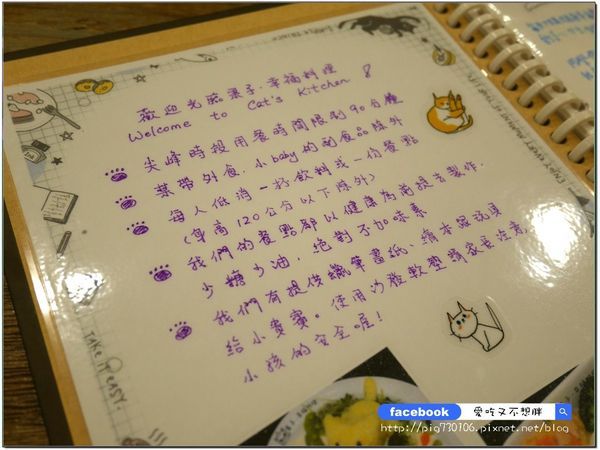 歡迎光臨栗子.幸福料理
Welcome to Cat's Kitchen 8
尖峰時段用餐時間限制90分鐘
禁帶外食.小baby的副食品除外
每人低消一杯飲料或一份餐點
(身高120公分以下除外)
我們的餐點都以健康為前提去製作.
少糖少油,絕對不加味素
我們有提供蠟筆畫紙、繪本跟玩具
給小寶寶。使用沙發軟墊請家長注意
小孩的安全喔!
TAKE IT EASY.
facebook 愛吃又不想胖
http://pig730106.pixnet.net/blog